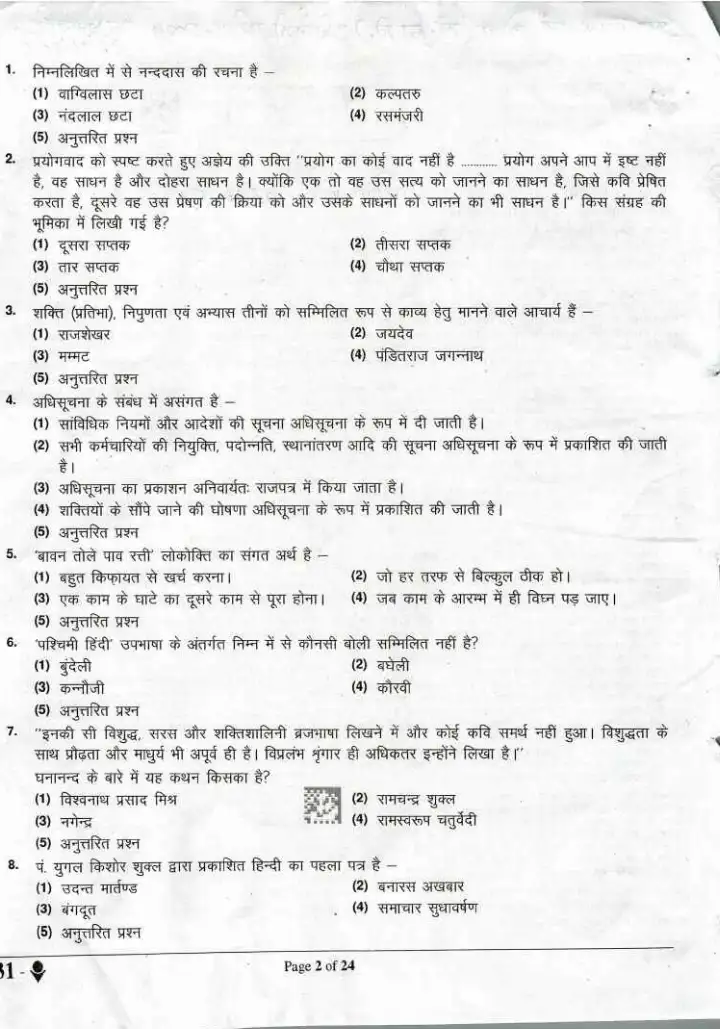 1. निम्नलिखित में से नन्ददास की रचना है –
(1) वाग्विलास छटा (2) कल्पतरु
(3) नंदलाल छटा (4) रसमंज़री
(5) अनुत्तरित प्रश्न
2. प्रयोगवाद को स्पष्ट करते हुए अज्ञेय की उक्ति "प्रयोग का कोई वाद नहीं है ............ प्रयोग अपने आप में इष्ट नहीं
है, वह साधन है और दोहरा साधन है। क्योंकि एक तो वह उस सत्य को जानने का साधन है, जिसे कवि प्रेषित
करता है, दूसरे वह उस प्रेषण की क्रिया को और उसके साधनों को जानने का भी साधन है।" किस संग्रह की
भूमिका में लिखी गई है?
(1) दूसरा सप्तक (2) तीसरा सप्तक
(3) तार सप्तक (4) चौथा सप्तक
(5) अनुत्तरित प्रश्न
3. शक्ति (प्रतिभा), निपुणता एवं अभ्यास तीनों को सम्मिलित रूप से काव्य हेतु मानने वाले आचार्य हैं –
(1) राजशेखर (2) जयदेव
(3) मम्मट (4) पंडितराज जगन्नाथ
(5) अनुत्तरित प्रश्न
4. अधिसूचना के संबंध में असंगत है –
(1) सांविधिक नियमों और आदेशों की सूचना अधिसूचना के रूप में दी जाती है।
(2) सभी कर्मचारियों की नियुक्ति, पदोन्नति, स्थानांतरण आदि की सूचना अधिसूचना के रूप में प्रकाशित की जाती
है।
(3) अधिसूचना का प्रकाशन अनिवार्यतः राजपत्र में किया जाता है।
(4) शक्तियों के सौंपे जाने की घोषणा अधिसूचना के रूप में प्रकाशित की जाती है।
(5) अनुत्तरित प्रश्न
5. 'बावन तोले पाव रत्ती' लोकोक्ति का संगत अर्थ है –
(1) बहुत किफ़ायत से खर्च करना। (2) जो हर तरफ से बिल्कुल ठीक हो।
(3) एक काम के घाटे का दूसरे काम से पूरा होना। (4) जब काम के आरम्भ में ही विघ्न पड़ जाए।
(5) अनुत्तरित प्रश्न
6. 'पश्चिमी हिंदी' उपभाषा के अंतर्गत निम्न में से कौनसी बोली सम्मिलित नहीं है?
(1) बुंदेली (2) बघेली
(3) कन्नौजी (4) कौरवी
(5) अनुत्तरित प्रश्न
7. "इनकी सी विशुद्ध, सरस और शक्तिशालिनी ब्रजभाषा लिखने में और कोई कवि समर्थ नहीं हुआ। विशुद्धता के
साथ प्रौढ़ता और माधुर्य भी अपूर्व ही है। विप्रलंभ शृंगार ही अधिकतर इन्होंने लिखा है।"
घनानन्द के बारे में यह कथन किसका है?
(1) विश्वनाथ प्रसाद मिश्र (2) रामचन्द्र शुक्ल
(3) नगेन्द्र (4) रामस्वरूप चतुर्वेदी
(5) अनुत्तरित प्रश्न
8. पं. युगल किशोर शुक्ल द्वारा प्रकाशित हिन्दी का पहला पत्र है –
(1) उदन्त मार्तण्ड (2) बनारस अखबार
(3) बंगदूत (4) समाचार सुधावर्षण
(5) अनुत्तरित प्रश्न
31 - Page 2 of 24